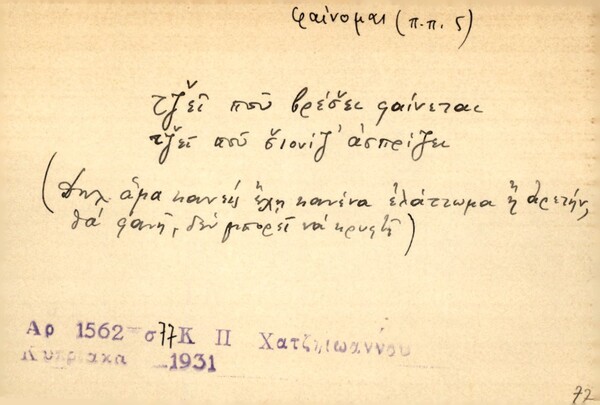 φαίνομαι (π.π. 5)
τζ̌εῖ ποῦ βρέσ̌ει φαίνεται
τζ̌εῖ ποῦ σ̌ιονίζ' ἀσπρίζει
(Δηλ. ἅμα κανείς ἔχῃ κανένα ἐλάττωμα ἤ ἀρετήν,
θά φανῇ, δέν μπορεῖ νά κρυφτῇ)
Αρ 1562 σ77 Κ Π Χατζηιωαννου
Κυπριακα 1931
72